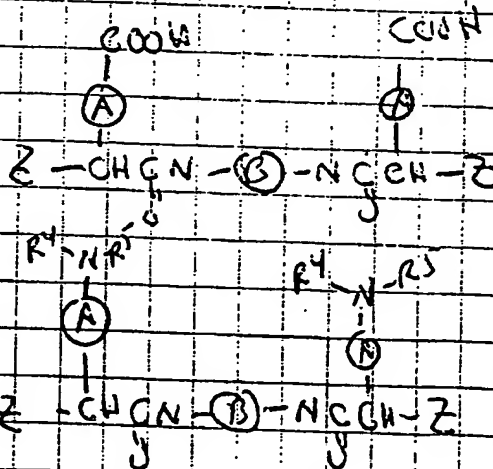 COOH COOH
A A
Z - CH C N - B - N C CH - Z
O Y
R⁴ N R⁵ R⁴ N R⁵
A A
Z - CH C N - B - N C CH - Z
Y Y